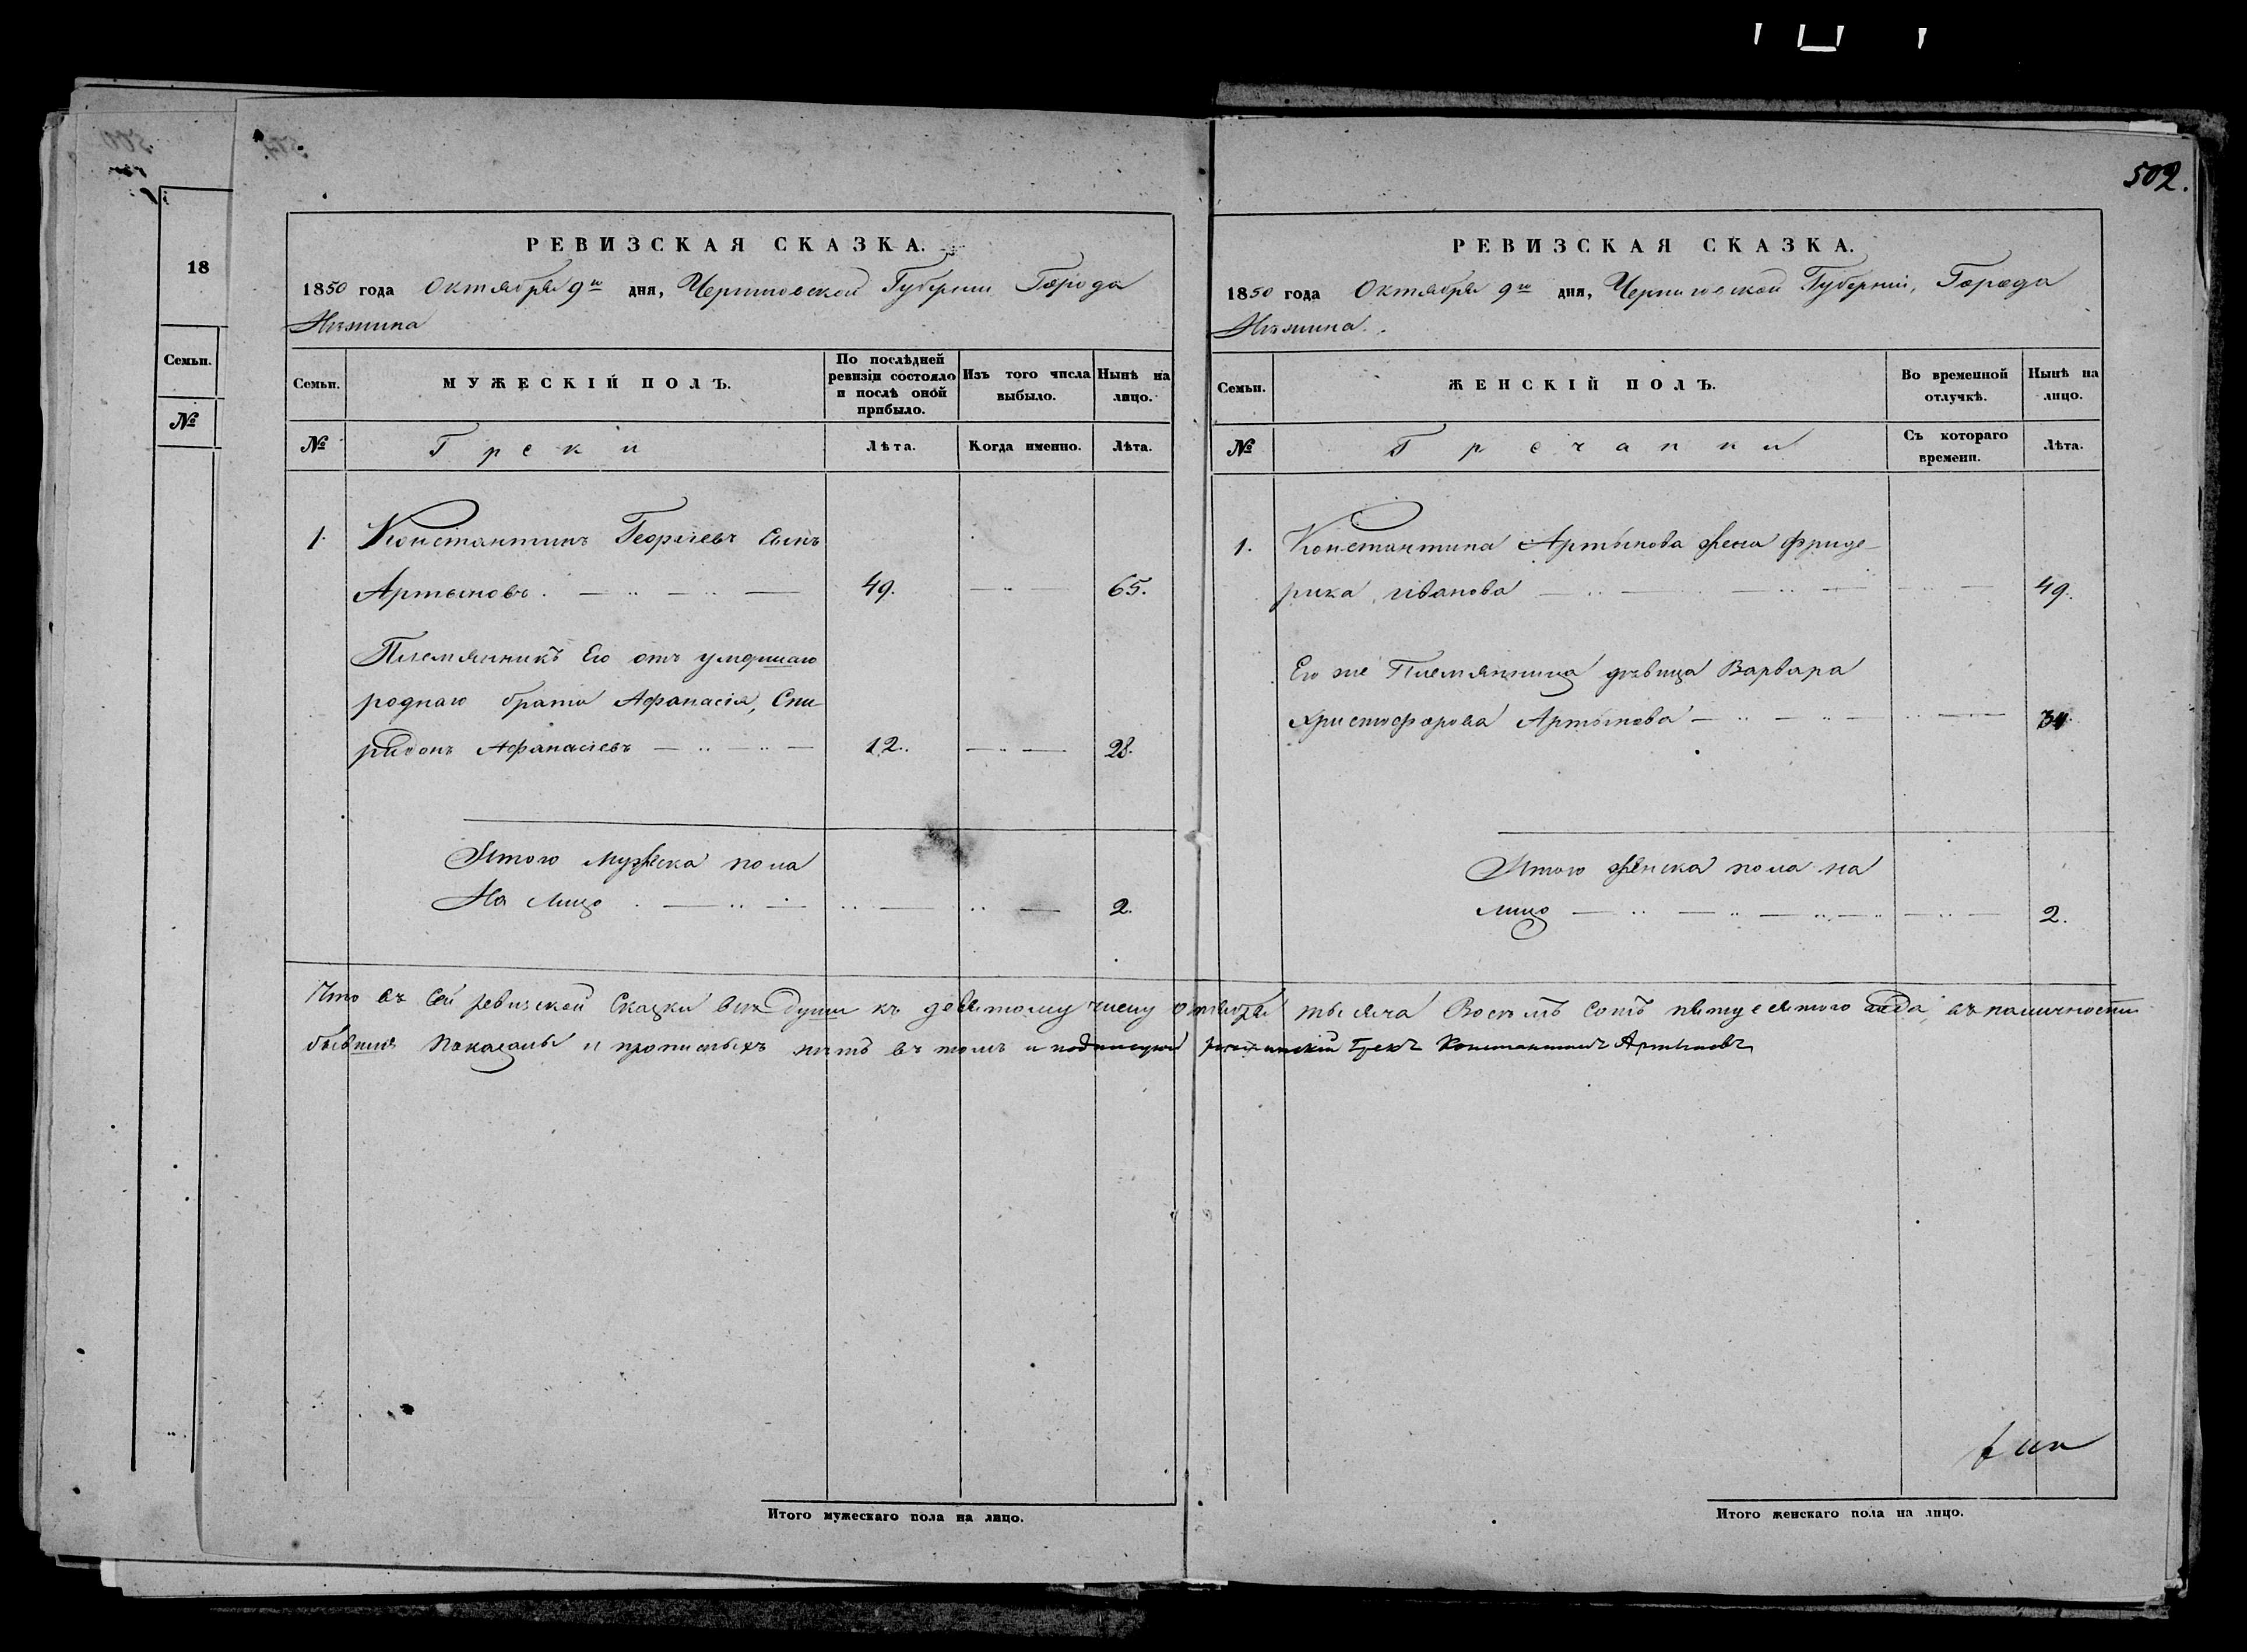 502.
18
Семьи.
№
РЕВИЗСКАЯ СКАЗКА.
1850 года Октября 9го дня, Черниговской Губернiи Города
Нѣжина
Семьи.
МУЖЕСКIЙ ПОЛЪ.
По послѣдней
ревизiи состояло
и послѣ оной
прибыло.
Изъ того числа
выбыло.
Нынѣ на
лицо.
№
Греки
Лѣта.
Когда именно.
Лѣта.
1. Константинъ Георгiевъ Сынъ
Артыновъ. 49. 65.
Племянникъ Его отъ умершаго
роднаго брата Афанасiя, Спи
ридонъ Афанасiевъ 12. 28.
Итого мужеска пола
На лицо 2.
РЕВИЗСКАЯ СКАЗКА.
1850 года Октября 9го дня, Черниговской Губернiи, Города
Нѣжина.
Семьи.
ЖЕНСКIЙ ПОЛЪ.
Во временной
отлучкѣ.
Нынѣ на
лицо.
№
Гречанки
Съ котораго
времени.
Лѣта.
1. Константина Артынова жена Фриде-
рика иванова 49.
Его же Племянница дѣвица Варвара
Христофорова Артынова 34.
Итого женска пола на
лицо 2.
Что въ Сей ревизской Сказки всѣ души къ девятому числу октября тысяча Восемъ Сотъ пятдесятого года, въ наличности
бывшiя Показаны и прописныхъ нѣтъ въ томъ и подписуюсь нѣжинскiй Грекъ Константинъ Артыновъ
Итого мужескаго пола на лицо.
Итого женскаго пола на лицо.